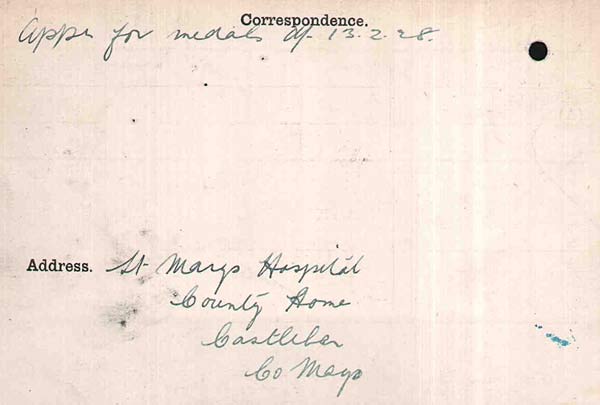 Correspondence.
Appn for medals df 13.2.28.
Address. St Marys Hospital
County Home
Castlebar
Co Mayo